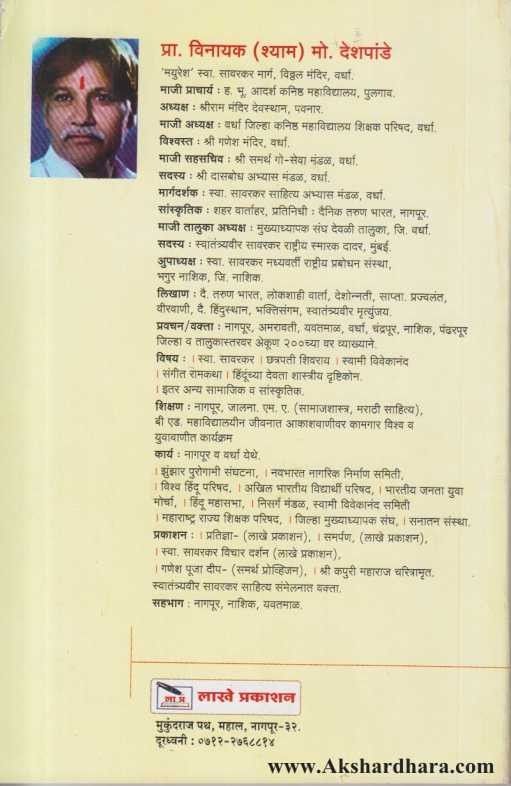 प्रा. विनायक (श्याम) मो. देशपांडे
'मयुरेश' स्वा. सावरकर मार्ग, विठ्ठल मंदिर, वर्धा.
माजी प्राचार्य : ह. भू. आदर्श कनिष्ठ महाविद्यालय, पुलगाव.
अध्यक्ष : श्रीराम मंदिर देवस्थान, पवनार.
माजी अध्यक्ष : वर्धा जिल्हा कनिष्ठ महाविद्यालय शिक्षक परिषद, वर्धा.
विश्वस्त : श्री गणेश मंदिर, वर्धा.
माजी सहसचिव : श्री समर्थ गो-सेवा मंडळ, वर्धा.
सदस्य : श्री दासबोध अभ्यास मंडळ, वर्धा.
मार्गदर्शक : स्वा. सावरकर साहित्य अभ्यास मंडळ, वर्धा.
सांस्कृतिक : शहर वार्ताहर, प्रतिनिधी : दैनिक तरुण भारत, नागपूर.
माजी तालुका अध्यक्ष : मुख्याध्यापक संघ देवळी तालुका, जि. वर्धा.
सदस्य : स्वातंत्र्यवीर सावरकर राष्ट्रीय स्मारक दादर, मुंबई.
अुपाध्यक्ष : स्वा. सावरकर मध्यवर्ती राष्ट्रीय प्रबोधन संस्था,
भगुर नाशिक, जि. नाशिक.
लिखाण : दै. तरुण भारत, लोकशाही वार्ता, देशोन्नती, साप्ता. प्रज्वलंत,
वीरवाणी, दै. हिंदुस्थान, भक्तिसंगम, स्वातंत्र्यवीर मृत्युंजय.
प्रवचन/वक्ता : नागपूर, अमरावती, यवतमाळ, वर्धा, चंद्रपूर, नाशिक, पंढरपूर
जिल्हा व तालुकास्तरवर अेकूण २००च्या वर व्याख्याने.
विषय : । स्वा. सावरकर । छत्रपती शिवराय । स्वामी विवेकानंद
। संगीत रामकथा । हिंदूंच्या देवता शास्त्रीय दृष्टिकोन.
। इतर अन्य सामाजिक व सांस्कृतिक.
शिक्षण : नागपूर, जालना. एम. ए. (सामाजशास्त्र, मराठी साहित्य),
बी एड. महाविद्यालयीन जीवनात आकाशवाणीवर कामगार विश्व व
युवावाणीत कार्यक्रम
कार्य : नागपूर व वर्धा येथे.
। झुंझार पुरोगामी संघटना, । नवभारत नागरिक निर्माण समिती,
। विश्व हिंदू परिषद, । अखिल भारतीय विद्यार्थी परिषद, । भारतीय जनता युवा
मोर्चा, । हिंदू महासभा, । निसर्ग मंडळ, स्वामी विवेकानंद समिती
। महाराष्ट्र राज्य शिक्षक परिषद, । जिल्हा मुख्याध्यापक संघ, । सनातन संस्था.
प्रकाशन : । प्रतिज्ञा- (लाखे प्रकाशन), । समर्पण, (लाखे प्रकाशन),
। स्वा. सावरकर विचार दर्शन (लाखे प्रकाशन),
। गणेश पूजा दीप- (समर्थ प्रोव्हिजन), । श्री कपुरी महाराज चरित्रामृत.
स्वातंत्र्यवीर सावरकर साहित्य संमेलनात वक्ता.
सहभाग : नागपूर, नाशिक, यवतमाळ.
ला प्र लाखे प्रकाशन
मुकुंदराज पथ, महाल, नागपूर-३२.
दूरध्वनी : ०७१२-२७६८८१४
www.Akshardhara.com